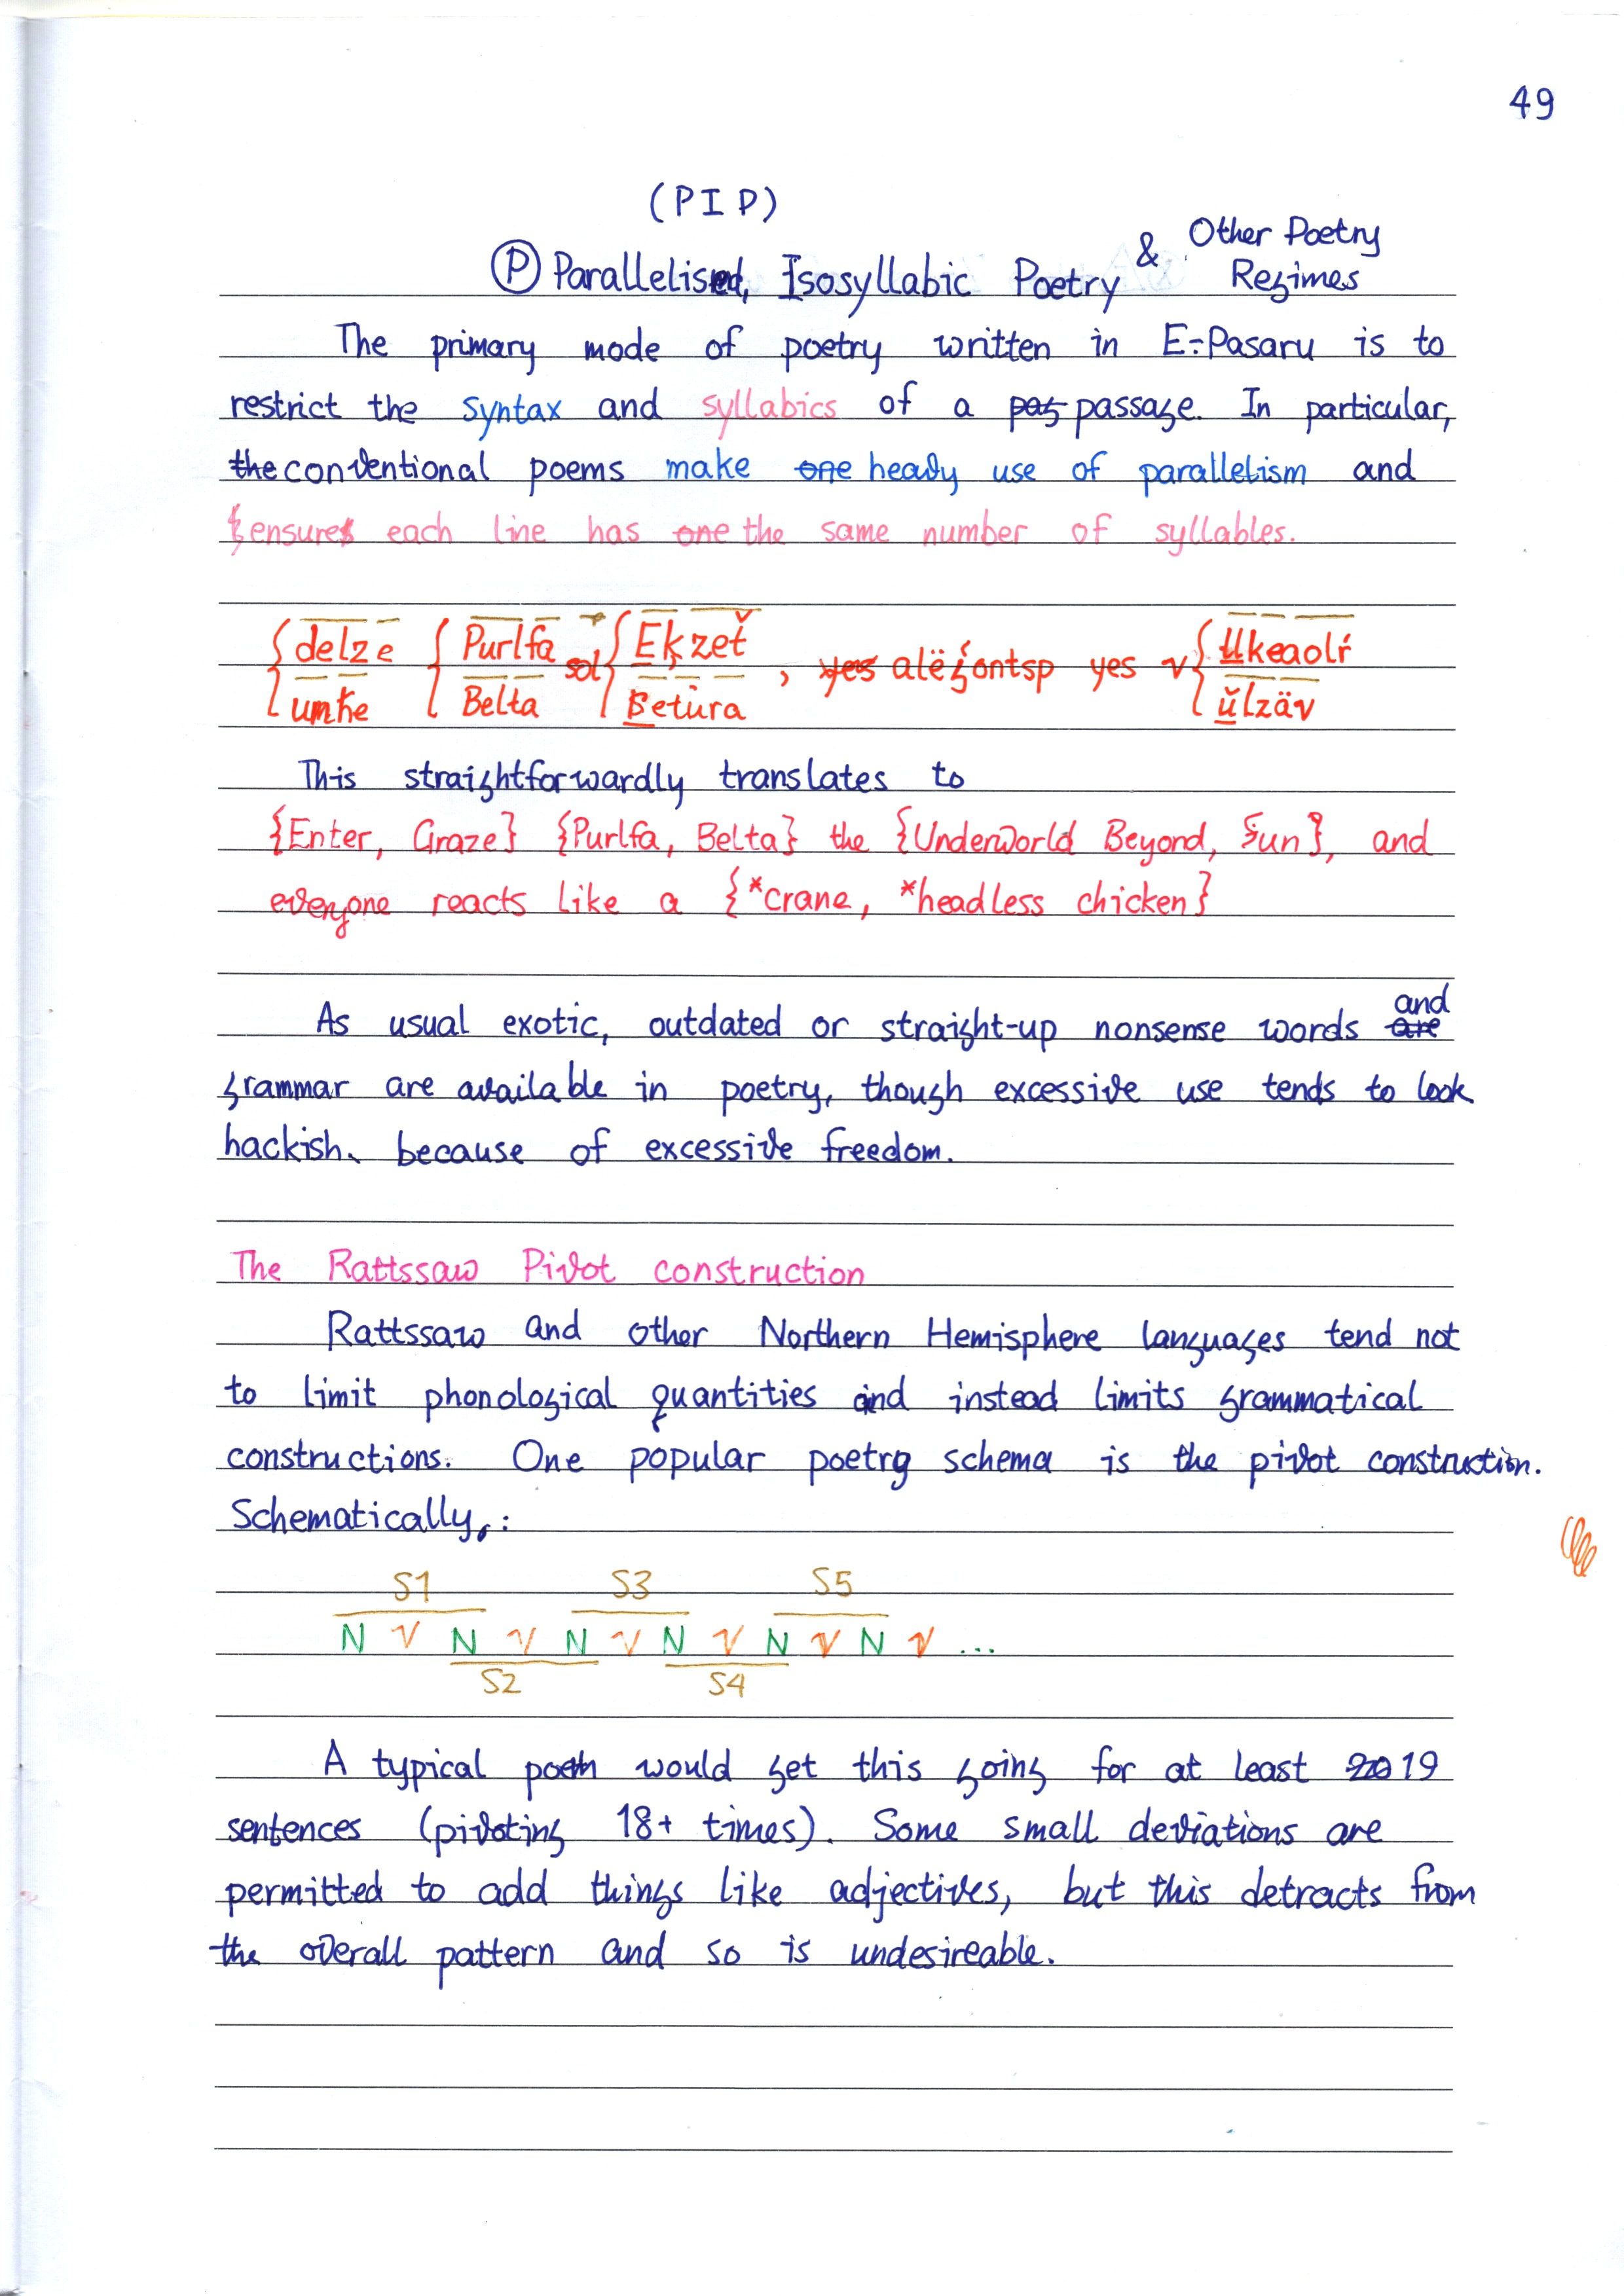 49
(PIP)
Ⓟ Parallelised, Isosyllabic Poetry & Other Poetry Regimes
The primary mode of poetry written in E-Pasaru is to
restrict the syntax and syllabics of a pas passage. In particular,
the conventional poems make one heavy use of parallelism and
ensures each line has one the same number of syllables.
{delze {Purlfa sol {Eķzeť , yes alëģontsp yes v {Ukeaolŕ
umħe Belta Betura ŭlzäv
This straightforwardly translates to
{Enter, Graze} {Purlfa, Belta} the {Underworld Beyond, Sun}, and
everyone reacts like a {*crane, *headless chicken}
As usual exotic, outdated or straight-up nonsense words are and
grammar are available in poetry, though excessive use tends to look
hackish, because of excessive freedom.
The Rattssaw Pivot construction
Rattssaw and other Northern Hemisphere languages tend not
to limit phonological quantities and instead limits grammatical
constructions. One popular poetry schema is the pivot construction.
Schematically,:
S1 S3 S5
N V N V N V N V N V N V ...
S2 S4
A typical poem would get this going for at least 20 19
sentences (pivoting 18+ times). Some small deviations are
permitted to add things like adjectives, but this detracts from
the overall pattern and so is undesireable.